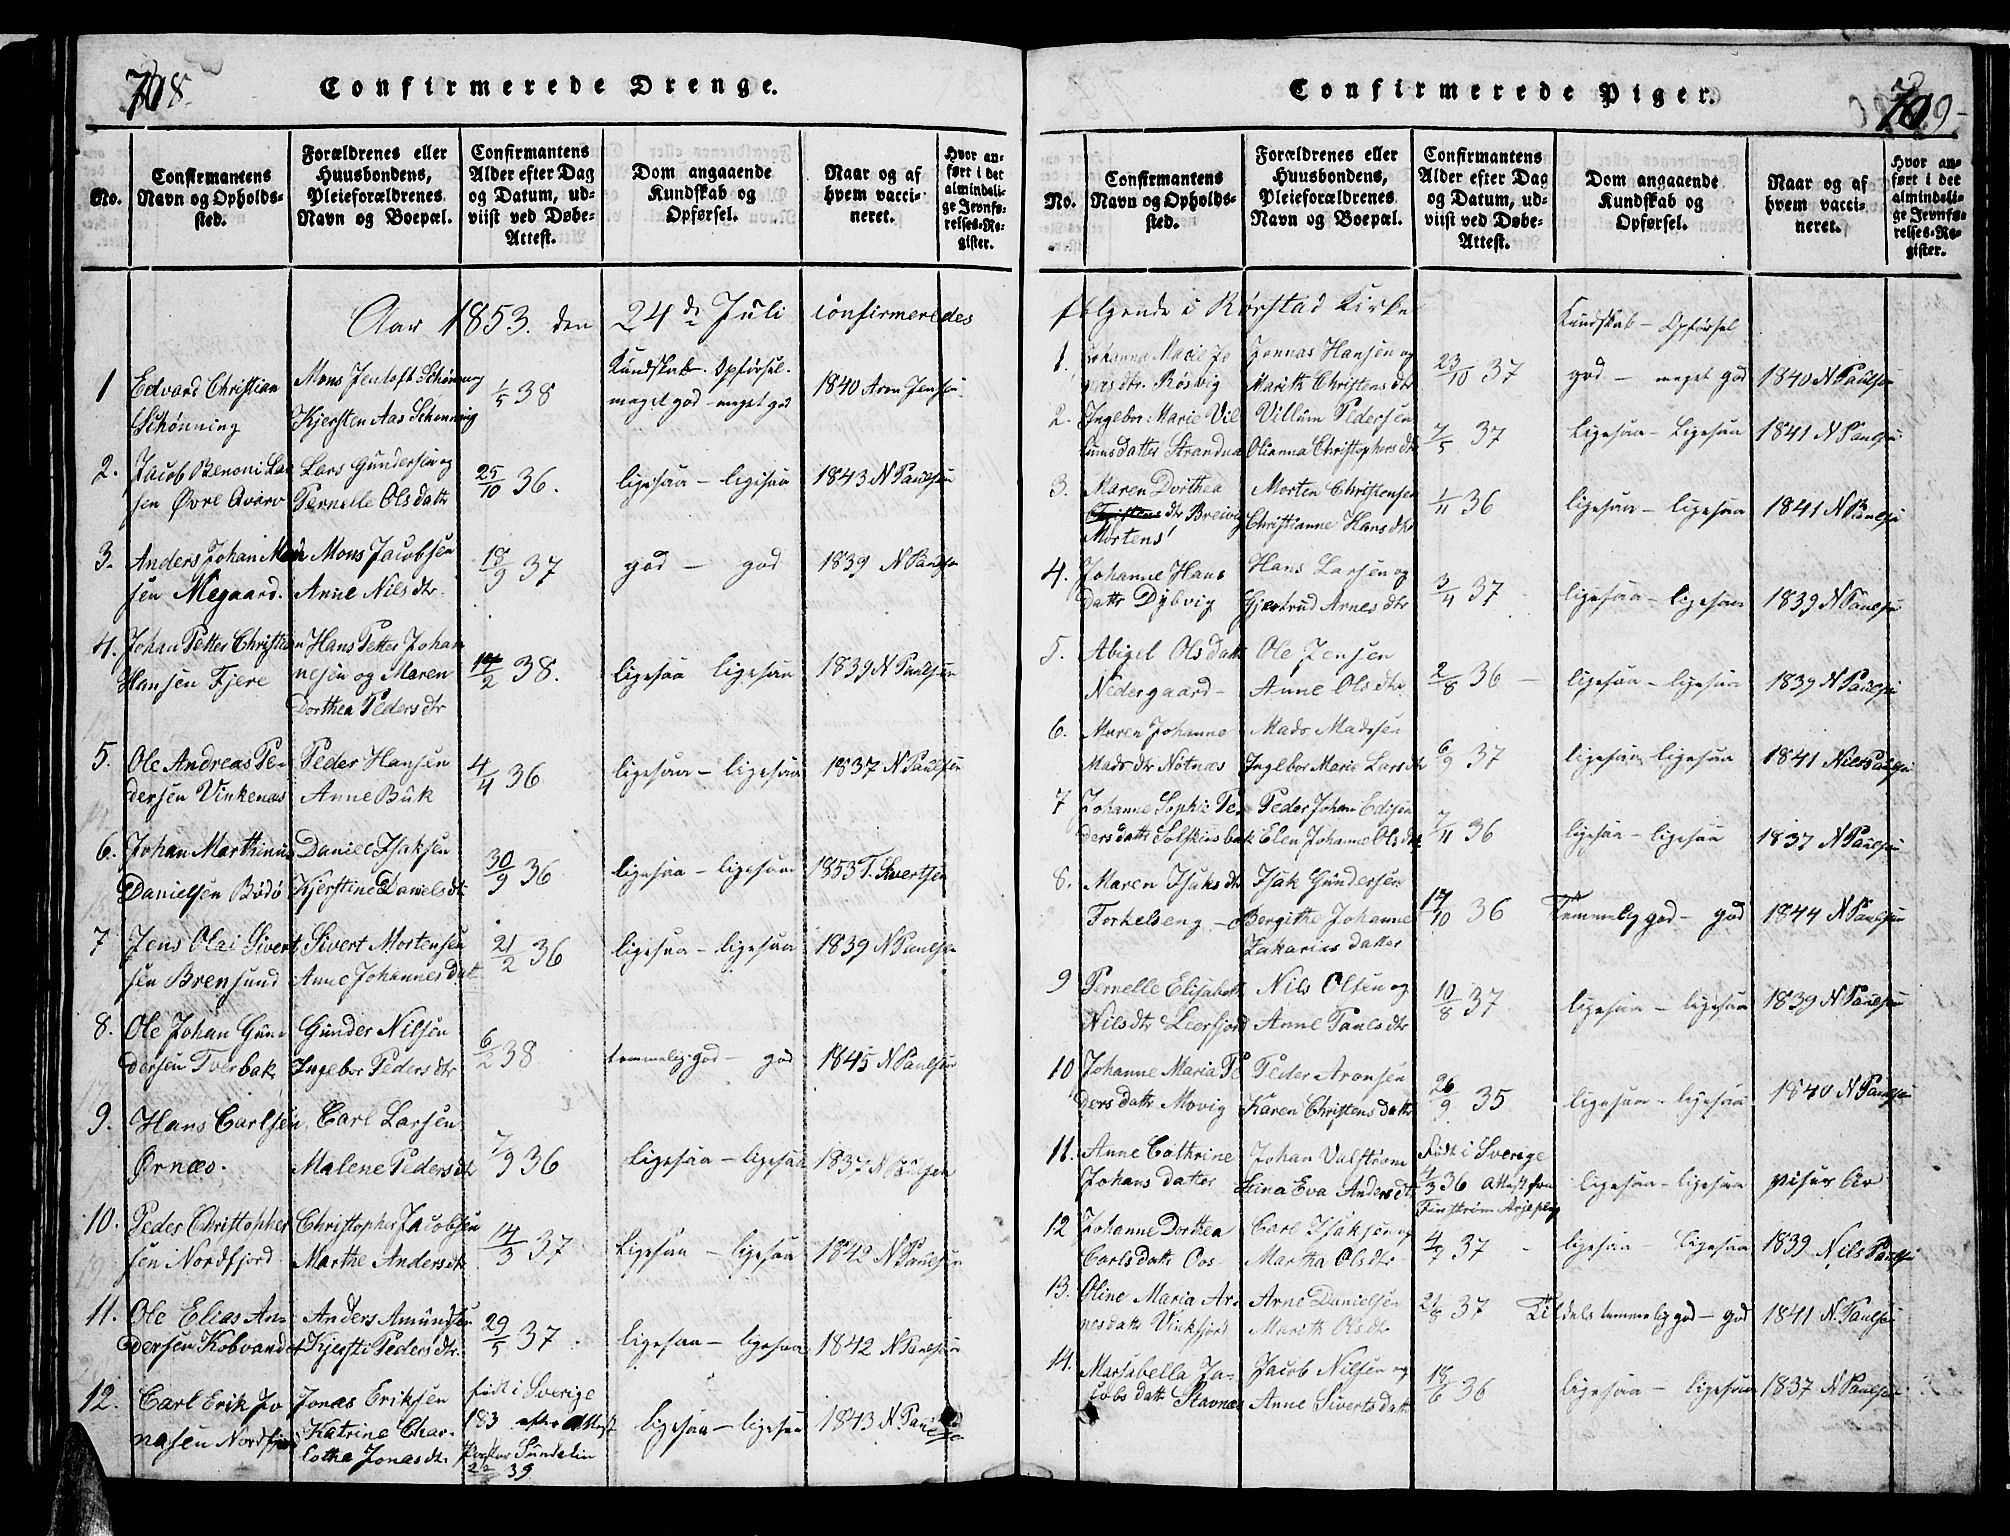 708.
Confirmerede Drenge.
No.
Confirmantens Navn og Opholdssted.
Forældrenes eller Huusbondens, Pleieforældrenes Navn og Boepæl.
Confirmantens Alder efter Dag og Datum, udviist ved Døbe-Attest.
Dom angaaende Kundskab og Opførsel.
Naar og af hvem vaccineret.
Hvor anført i det almindelige Jevnførelses-Register.
Aar 1853. den 24de Juli confirmeredes
Kundskab. Opførsel.
1 Edvard Christian Mons Jentoft Schønning 1/5 38 meget god - meget god 1840 Aron Jensen
Schønning Kjersten Aas Schønning
2. Jacob Benoni Lar Lars Gundersen og 25/10 36. ligesaa - ligesaa 1843 N Paulsen
sen Øvre Qvarv Pernelle Olsdatr
3. Anders Johan Mon Mons Jacobsen 18/9 37 god - god 1839 N Paulsen
sen Megaard. Anne Nilsdtr.
4. Johan Petter Christian Hans Petter Johan 14/2 38. ligesaa ligesaa 1839 N Paulsen
Hansen Fjere nesen og Maren
Dorthea Pedersdtr
5. Ole Andreas Pe- Peder Hansen 4/4 36 ligesaa - ligesaa 1837 N Paulsen
dersen Vinkenæs Anne Buk
6. Johan Marthinus Daniel Isaksen 30/9 36 ligesaa - ligesaa 1853 T. Sivertsen
Danielsen Bødø Kjerstine Danielsdtr
7 Jens Olai Sivert Sivert Mortensen 21/2 36 ligesaa - ligesaa 1839 N Paulsen
sen Brensund Anne Johannesdatr
8. Ole Johan Gun- Gunder Nilsen 6/2 38 temmelig god - god 1845 N Paulsen
dersen Tverbak Ingebor Pedersdtr
9. Hans Carlsen Carl Larsen 7/9 36 Ligesaa - ligesaa 1837 N Paulsen
Ørnæs. Malene Pedersdtr
10. Peder Christopher Christopher Jacobsen 14/3 37 Ligesaa - ligesaa 1842 N Paulsen
sen Nordfjord Marthe Andersdtr
11. Ole Elias An- Anders Amundsen 29/5 37 ligesaa - ligesaa 1842 N Paulsen
dersen Kobvandet Kjersti Pedersdtr.
12. Carl Erik Jo Jonas Eriksen født i Sverige
nasen Nordfjord Katrine Char- 183 efter Attest ligesaa - ligesaa 1843 N Paulsen
lotha Jonasdtr. Pastor Sundelin
39
709
Confirmerede Piger.
No.
Confirmantens Navn og Opholdssted.
Forældrenes eller Huusbondens, Pleieforældrenes Navn og Boepæl.
Confirmantens Alder efter Dag og Datum, udviist ved Døbe-Attest.
Dom angaaende Kundskab og Opførsel.
Naar og af hvem vaccineret.
Hvor anført i det almindelige Jevnførelses-Register.
følgende i Rørstad Kirke
Kundskab - Opførsel
1. Johanna Marie Jo Jonnas Hansen og 23/10 37 god - meget god 1840 N Paulsen
nasdtr. Røsvig Marith Christensdtr
2. Ingebor Marie Vil Villum Pedersen 7/5 37 Ligesaa - Ligesaa 1841 N Paulsen
lumsdatter Strandna Olianna Christophersdtr
3. Maren Dorthea Morten Christensen 1/11 36 ligesaa - ligesaa 1841 N Paulsen
Christens dtr Breivig Christianne Hansdtr
Mortens
4. Johanne Hans Hans Larsen og 3/4 37 - ligesaa - ligesaa 1839 N Paulsen
datr Dybvig Gjertrud Arnesdtr
5. Abigel Olsdatr Ole Jensen 2/8 36 - ligesaa - ligesaa 1837 N Paulsen
Nedergaard - Anne Olsdtr
6. Maren Johanne Mads Madssen 6/9 37 ligesaa ligesaa 1841 Nils Paulsen
Madsdtr Nøtnæs Ingebor Marie Larsdtr
7 Johanne Sophie Pe- Peder Johan Edisen 7/11 36 ligesaa - ligesaa 1837 N Paulsen
dersdatr Solskinsbak Elen Johanne Olsdtr
8. Maren Isaksdtr Isak Gundersen 14/10 36 Temmelig god - god 1844 N Paulsen
Torkelseng - Bergithe Johanne
Zakariasdatter
9 Pernelle Elisabeth Nils Olsen og 10/8 37 ligesaa - ligesaa 1839 N Paulsen
Nilsdtr Leerfjord Anne Paulsdtr
10 Johanne Maria Pe Peder Aronsen 26/9. 35 ligesaa - ligesaa 1840 N Paulsen
dersdatr Movig Karen Christensdatr
11. Anne Cathrine Johan Valstrøm født i Sverige
Johansdatter Stina Eva Andersdtr 4/3 36 Attest fra ligesaa - ligesaa viser Ar
Finstrøm Arjeplog
12 Johanne Dorthea Carl Isaksen og 4/7 37 - ligesaa - ligesaa 1839 Nils Paulsen
Carlsdatr Oos Martha Olsdtr
13. Oline Maria Ar- Arne Danielsen 21/8 37 Tildels temmelig god - god 1841 N. Paulsen
nesdatr Vinkfjord Marith Olsdtr
14. Marsabella Ja- Jacob Nilsen og 18/6 36 ligesaa - ligesaa 1837 N Paulsen
cobsdatr Stavnæs Anne Sivertsdatr